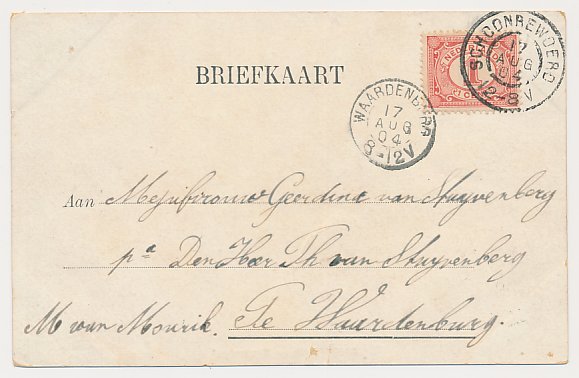 BRIEFKAART
SCHOONREWOERD
17
AUG
04
12-8V
WAARDENBURG
17
AUG
04
8-12V
Aan Mejufvrouw Geerdina van Stuyvenberg
pa Den Heer Th van Stuyvenberg
M van Mourik. Te Waardenburg.